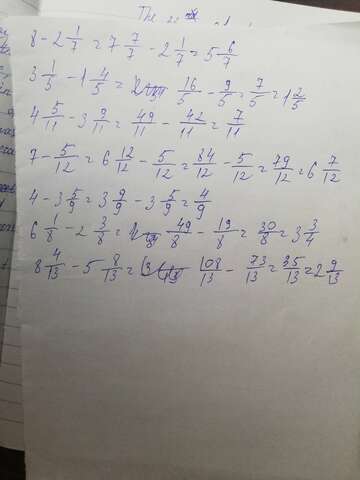 The
8 - 2 1/7 = 7 7/7 - 2 1/7 = 5 6/7
3 1/5 - 1 4/5 = 16/5 - 9/5 = 7/5 = 1 2/5
4 5/11 - 3 9/11 = 49/11 - 42/11 = 7/11
7 - 5/12 = 6 12/12 - 5/12 = 84/12 - 5/12 = 79/12 = 6 7/12
4 - 3 5/9 = 3 9/9 - 3 5/9 = 4/9
6 1/8 - 2 3/8 = 49/8 - 19/8 = 30/8 = 3 3/4
8 4/13 - 5 8/13 = 108/13 - 73/13 = 35/13 = 2 9/13